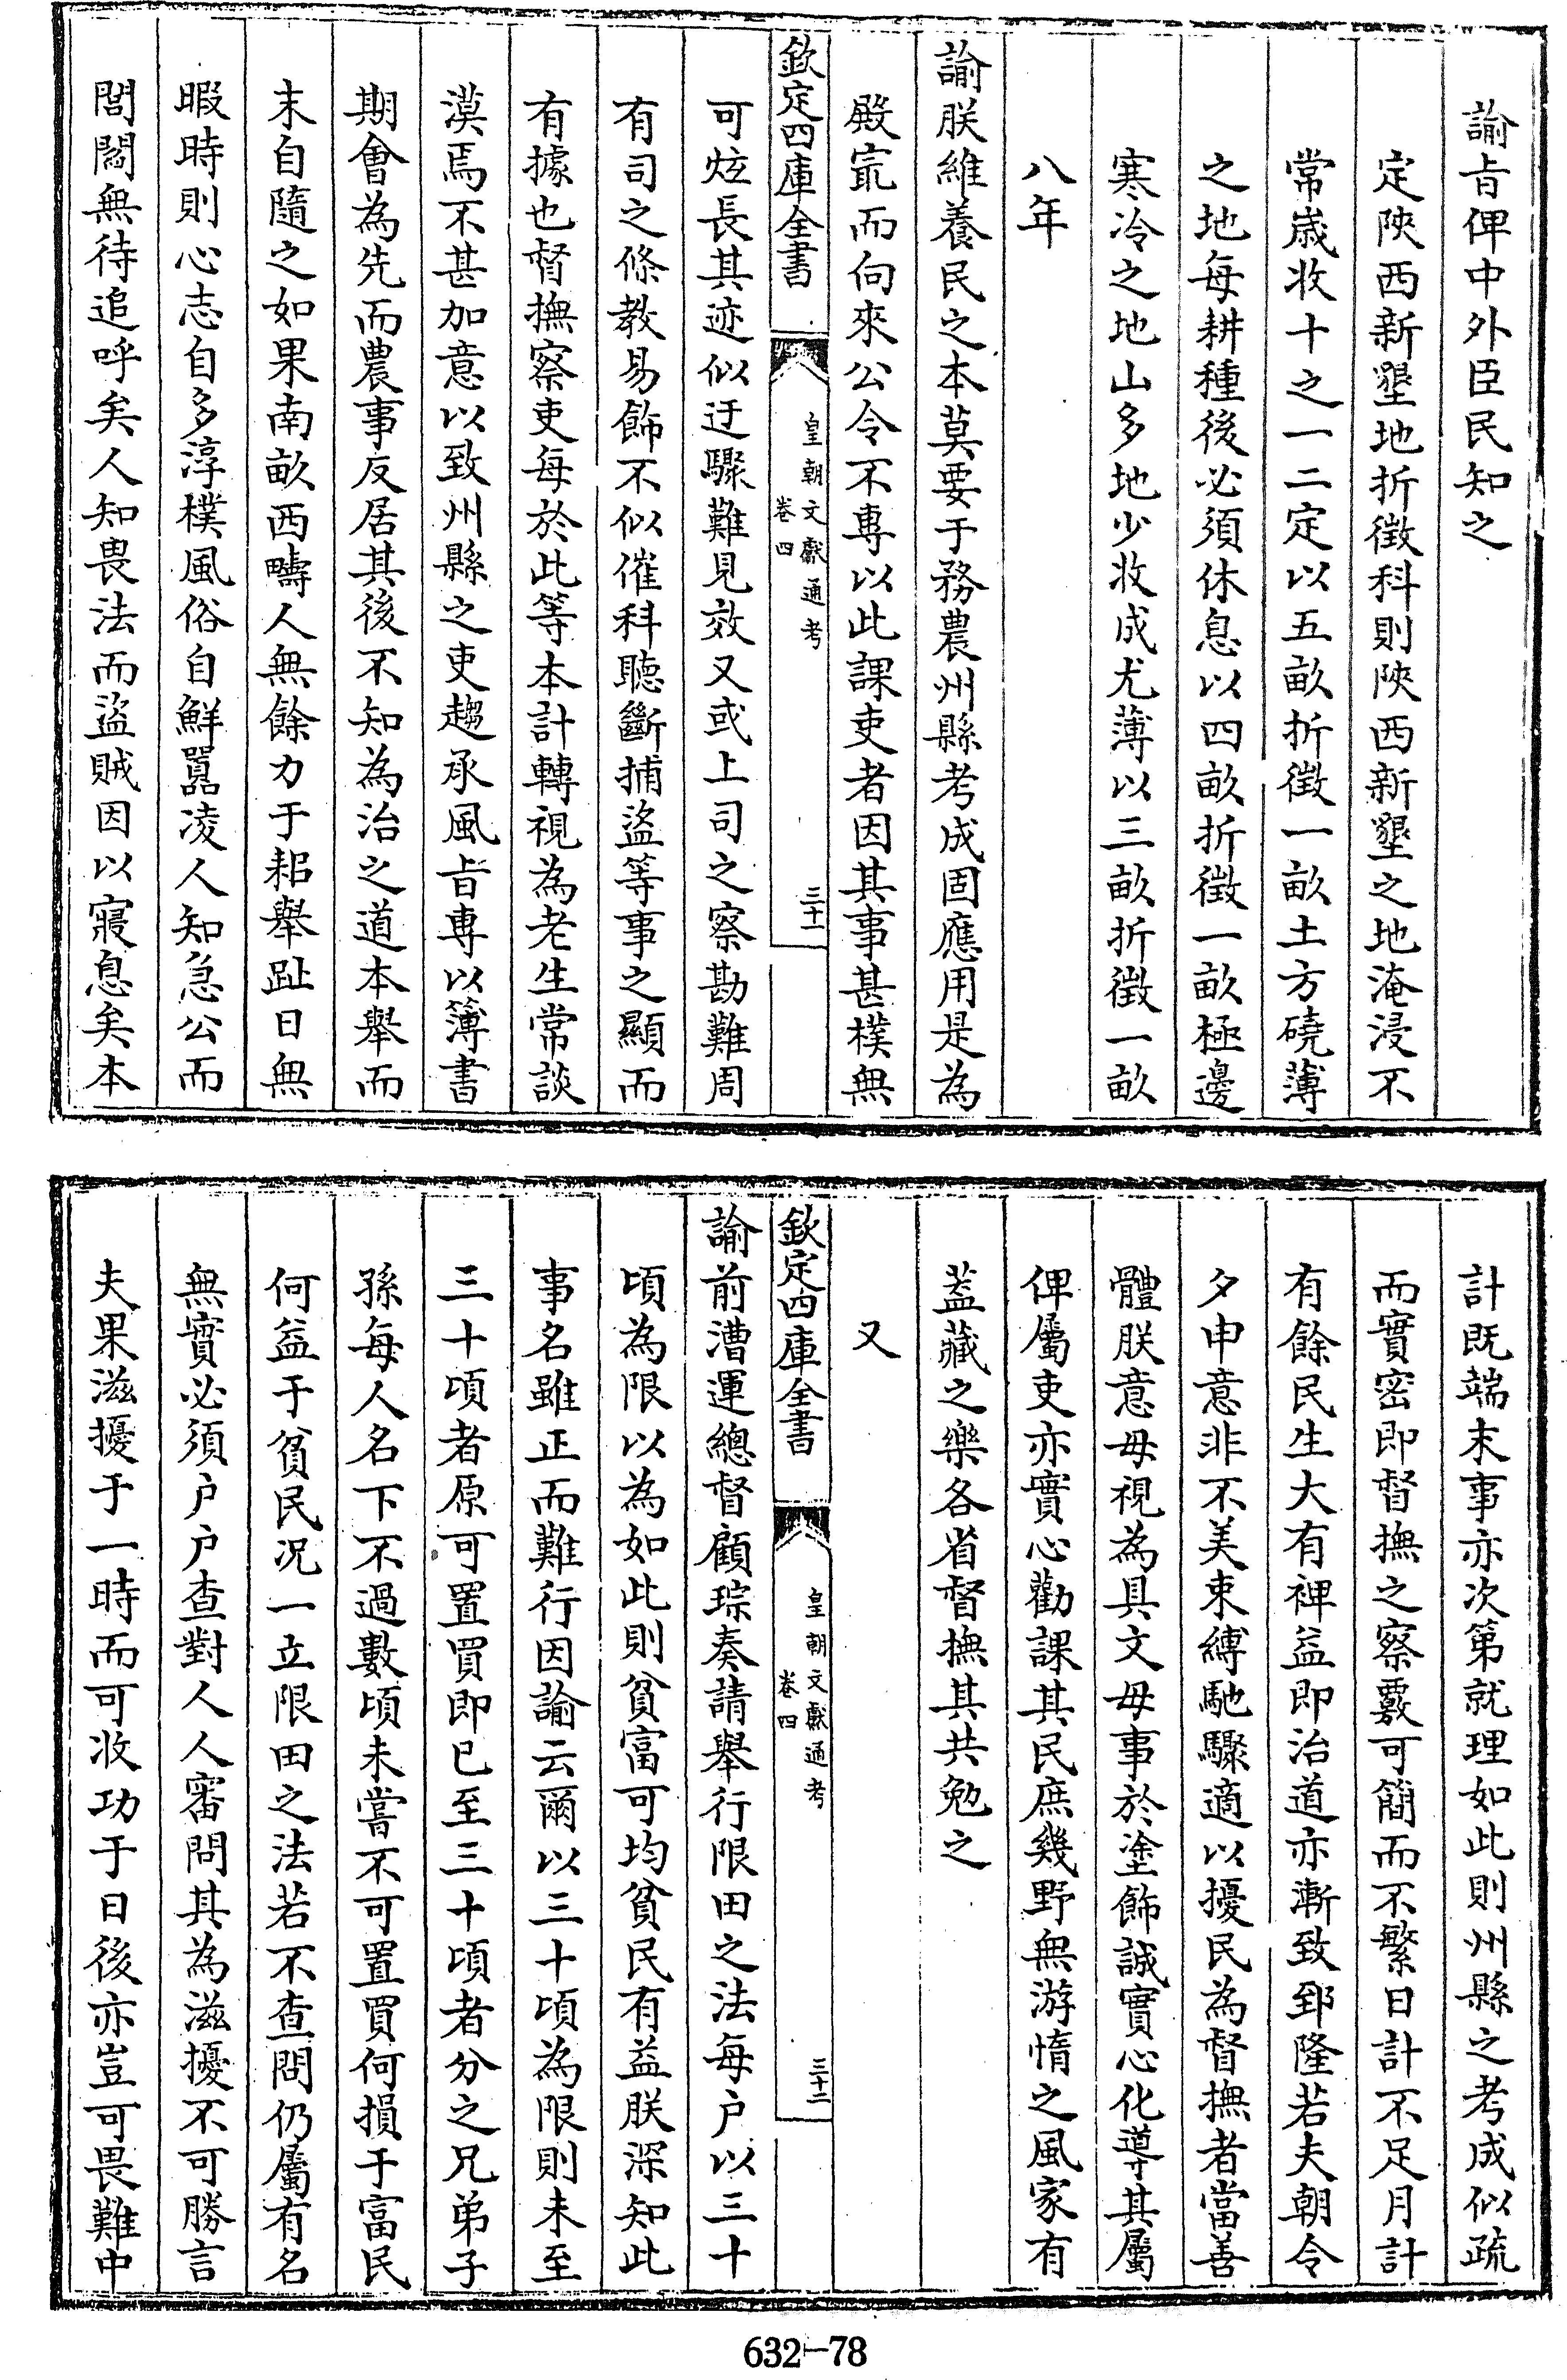 諭旨俾中外臣民知之
定陝西新墾地折徴科則陝西新墾之地淹浸不
常歳收十之一二定以五畝折徴一畝土方磽薄
之地每耕種後必須休息以四畝折徴一畝極邊
寒冷之地山多地少收成尤薄以三畝折徴一畝
八年
諭朕維養民之本莫要于務農州縣考成固應用是為
殿㝡而向來公令不專以此課吏者因其事甚樸無
欽定四庫全書
皇朝文獻通考
卷四
三十一
可炫長其迹似迂驟難見效又或上司之察勘難周
有司之條教易飾不似催科聽斷捕盗等事之顯而
有據也督撫察吏每於此等本計轉視為老生常談
漠焉不甚加意以致州縣之吏趨承風旨專以簿書
期會為先而農事反居其後不知為治之道本舉而
末自隨之如果南畝西疇人無餘力于耜舉趾日無
暇時則心志自多淳樸風俗自鮮囂凌人知急公而
閭閻無待追呼矣人知畏法而盜賊因以寢息矣本
計既端末事亦次第就理如此則州縣之考成似疏
而實密即督撫之察覈可簡而不繁日計不足月計
有餘民生大有裨益即治道亦漸致郅隆若夫朝令
夕申意非不美束縛馳驟適以擾民為督撫者當善
體朕意毋視為具文毋事於塗飾誠實心化導其屬
俾屬吏亦實心勸課其民庶幾野無游惰之風家有
蓋藏之樂各省督撫其共勉之
又
欽定四庫全書
皇朝文獻通考
卷四
三十二
諭前漕運總督顧琮奏請舉行限田之法每户以三十
頃為限以為如此則貧富可均貧民有益朕深知此
事名雖正而難行因諭云爾以三十頃為限則未至
三十頃者原可置買即已至三十頃者分之兄弟子
孫每人名下不過數頃未嘗不可置買何損于富民
何益于貧民况一立限田之法若不查問仍屬有名
無實必須户户查對人人審問其為滋擾不可勝言
夫果滋擾于一時而可收功于日後亦豈可畏難中
632-78